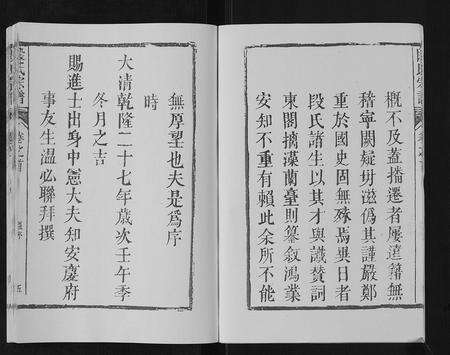 概不及蓋播遷者屢蘧籍無
稽寧闕疑毋濫僞其謹嚴鄭
重於國史固無殊焉異日者
段氏諸生以其才與識贊詞
東閣摛藻蘭臺則纂叙鴻業
安知不重有賴此余所不能
無厚望也夫是爲序
時
大清乾隆二十七年歲次壬午季
冬月之吉
賜進士出身中憲大夫知安慶府
事友生溫必聯拜撰
段氏宗譜
卷之首
五